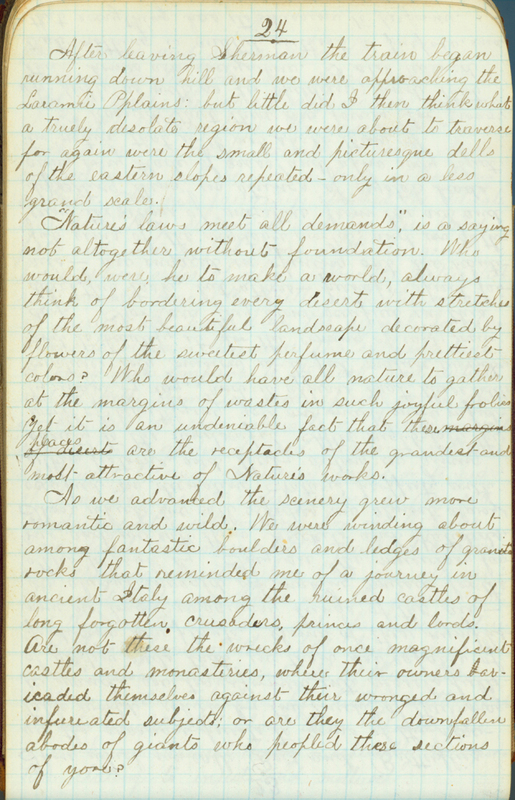 24
After leaving Sherman the train began
running down hill and we were approaching the
Laramie Pplains: but little did I then think what
a truely desolate region we were about to traverse
for again were the small and picturesque dells
of the eastern slopes repeated - only in a less
grand scale.
"Nature's laws meet all demands", is a saying
not altogether without foundation. Who
would, were he to make a world, always
think of bordering every desert with stretches
of the most beautiful landscape decorated by
flowers of the sweetest perfume and prettiest
colors? Who would have all nature to gather
at the margins of wastes in such joyful frolics
Yet it is an undeniable fact that these margins
places
of desert are the receptacles of the grandest and
most attractive of Nature's works.
As we advanced the scenery grew more
romantic and wild. We were winding about
among fantastic boulders and ledges of granite
rocks that reminded me of a journey in
ancient Italy among the ruined castles of
long forgotten crusaders, princes and lords.
Are not these the wrecks of once magnificent
castles and monasteries, where their owners bar-
icaded themselves against their wronged and
infureated subjects; or are they the downfallen
abodes of giants who peopled these sections
of yore?